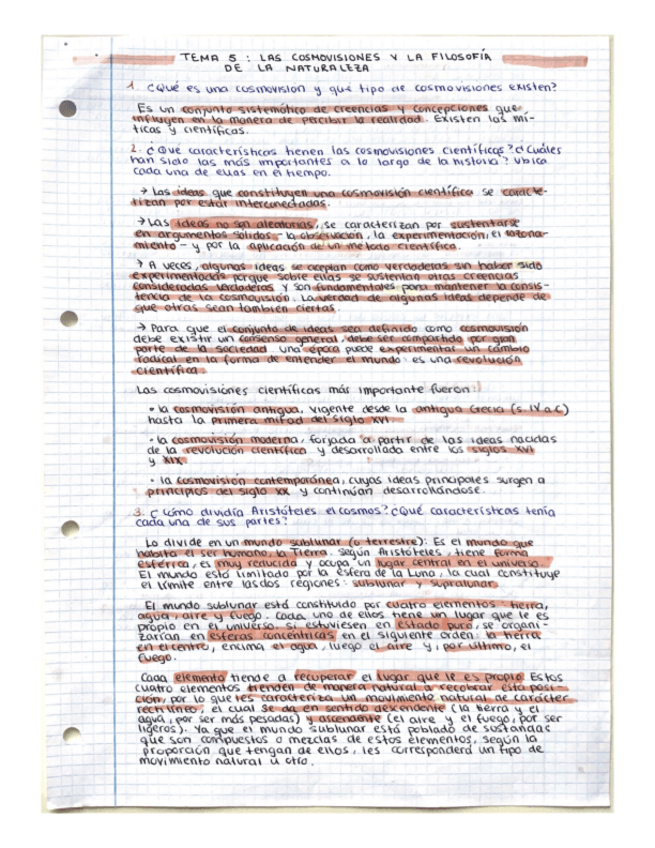 TEMA 5 : LAS COSMOVISIONES Y LA FILOSOFÍA
DE LA NATURALEZA
1. ¿Qué es una cosmovisión y qué tipo de cosmovisiones existen?
Es un conjunto sistemático de creencias y concepciones que
influyen en la manera de percibir la realidad. Existen las mí-
ticas y científicas.
2. ¿Qué características tienen las cosmovisiones científicas? ¿Cuáles
han sido las más importantes a lo largo de la historia? Ubica
cada una de ellas en el tiempo.
→ Las ideas que constituyen una cosmovisión científica se caracte-
rizan por estar interconectadas.
→ Las ideas no son aleatorias, se caracterizan por sustentarse
en argumentos sólidos - la observación, la experimentación, el razona-
miento - y por la aplicación de un método científico.
→ A veces, algunas ideas se aceptan como verdaderas sin haber sido
experimentadas porque sobre ellas se sustentan otras creencias
consideradas verdaderas y son fundamentales para mantener la consis-
tencia de la cosmovisión. La verdad de algunas ideas depende de
que otras sean también ciertas.
→ Para que el conjunto de ideas sea definido como cosmovisión
debe existir un consenso general, debe ser compartido por gran
parte de la sociedad. una época puede experimentar un cambio
radical en la forma de entender el mundo: es una revolución
científica.
Las cosmovisiones científicas más importante fueron:
• la cosmovisión antigua, vigente desde la antigua Grecia (s. IV a.C)
hasta la primera mitad del siglo XVI
• la cosmovisión moderna, forjada a partir de las ideas nacidas
de la revolución científica y desarrollada entre los siglos XVI
y XIX
• la cosmovisión contemporánea, cuyas ideas principales surgen a
principios del siglo XX y continúan desarrollándose.
3. ¿Cómo dividía Aristóteles el cosmos? ¿Qué características tenía
cada una de sus partes?
Lo divide en un mundo sublunar (o terrestre): Es el mundo que
habita el ser humano, la Tierra. Según Aristóteles, tiene forma
esférica, es muy reducida y ocupa un lugar central en el universo.
El mundo está limitado por la esfera de la Luna, la cual constituye
el límite entre las dos regiones: sublunar y supralunar.
El mundo sublunar está constituido por cuatro elementos - tierra,
agua, aire y fuego. Cada uno de ellos tiene un lugar que le es
propio en el universo. Si estuviesen en estado puro, se organi-
zarían en esferas concéntricas en el siguiente orden: la tierra
en el centro, encima el agua, luego el aire y, por último, el
fuego.
Cada elemento tiende a recuperar el lugar que le es propio. Estos
cuatro elementos tienden de manera natural a recobrar esta posi-
ción, por lo que les caracteriza un movimiento natural de carácter
rectilíneo, el cual se da en sentido descendente (la tierra y el
agua, por ser más pesadas) y ascendente (el aire y el fuego, por ser
ligeros). Ya que el mundo sublunar está poblado de sustancias
que son compuestos o mezclas de estos elementos, según la
proporción que tengan de ellos, les corresponderá un tipo de
movimiento natural u otro.